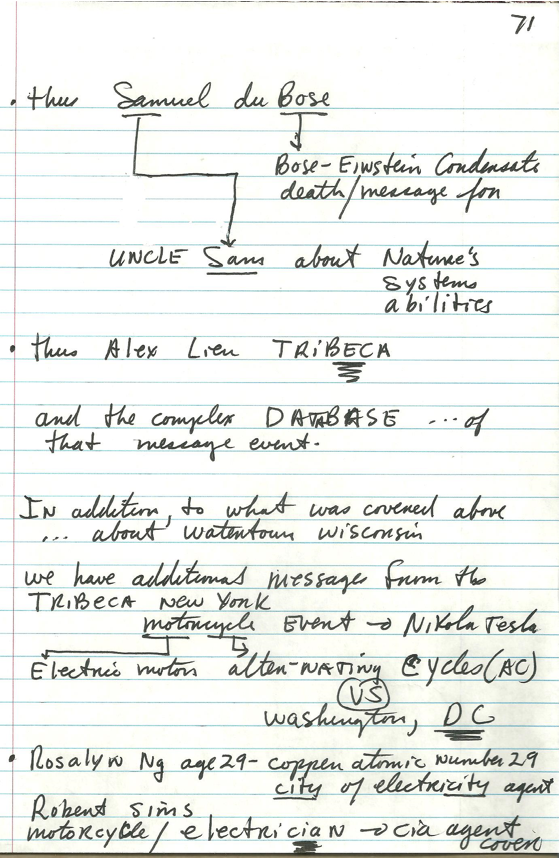 71
• thus Samuel du Bose
Bose-Einstein Condensate
death/message for
UNCLE Sam about Nature's
systems
abilities
• thus Alex Lien TRiBECA
and the complex DATABASE ... of
that message event.
IN addition, to what was covered above
... about watertown wisconsin
we have additional messages from the
TRiBECA NEW YORK
motorcycle EVENT → Nikola Tesla
Electric motor alter-NATing Cycles (AC)
VS
washington, DC
• Rosalyn Ng age 29 - copper atomic number 29
city of electricity agent
Robert Sims
motorcycle / electriciaN → cia agent
cover